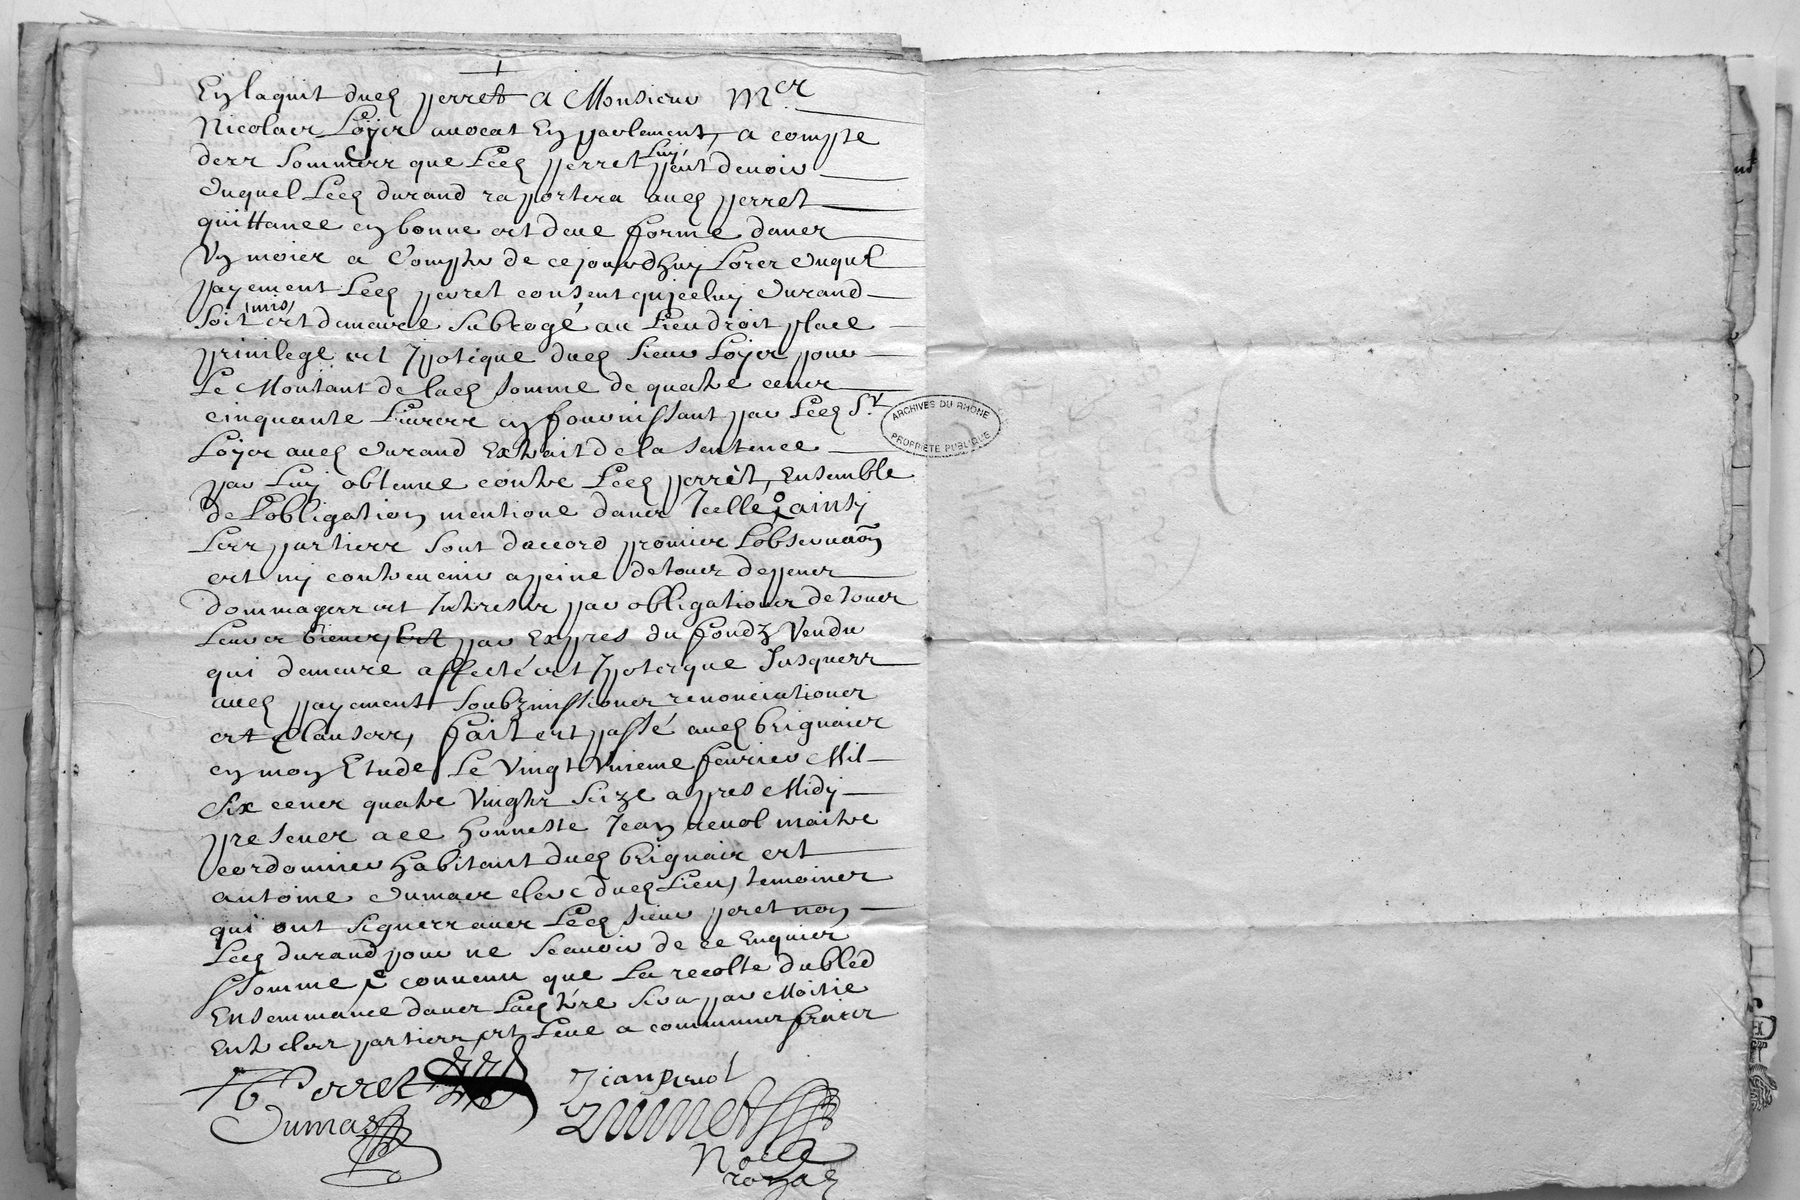 En laquit dud perret a Monsieur Mer
Nicolas Loyer avocat En parlement, a compte
des sommes que Led perret luy peut devoir
Duquel Led durand raportera aud perret
quittance en bonne et deue forme dans
Un mois a Compter de cejourdhuy Lors duquel
payement Led perret consent quicelluy Durand
soit mis et demeure subrogé au Lieu droit place
privilege et Ypoteque dud sieur Loyer pour
Le Montant de lad somme de quatre cens
cinquante Livres en fournissant par Led Sr
Loyer aud Durand Extrait de la sentence
par Luy obtenue contre Led perret, Ensemble
de Lobligation mentioné dans Icelle ainsy
Les parties sont daccord promis Lobservaon
et ny contrevenir a peine de tous depens
dommages et Intrests par obligations de tous
Leurs biens, Et par Expres du fondz Vendu
qui demeure affecté et Ypoteque Jusques
aud payement soubzmissions renonciations
et clauses, fait et passé aud brignais
en mon Etude Le Vingt Unieme fevrier Mil
six cens quatre Vingts seize apres Midy
presens a ce honneste Jean revol maitre
cordonnier habitant dud brignais et
antoine Dumas clerc dud Lieu, temoins
qui ont signes avec Led sieur peret non
Led durand pour ne scavoir de ce Enquier
somme convenu que La recolte du bled
Ensemmance dans Lad tre sera par Moitie
Entre les parties et Leve a communs frais
Perret Jean revol
Dumas
Noire
royal
ARCHIVES DU RHONE
PROPRIETE PUBLIQUE